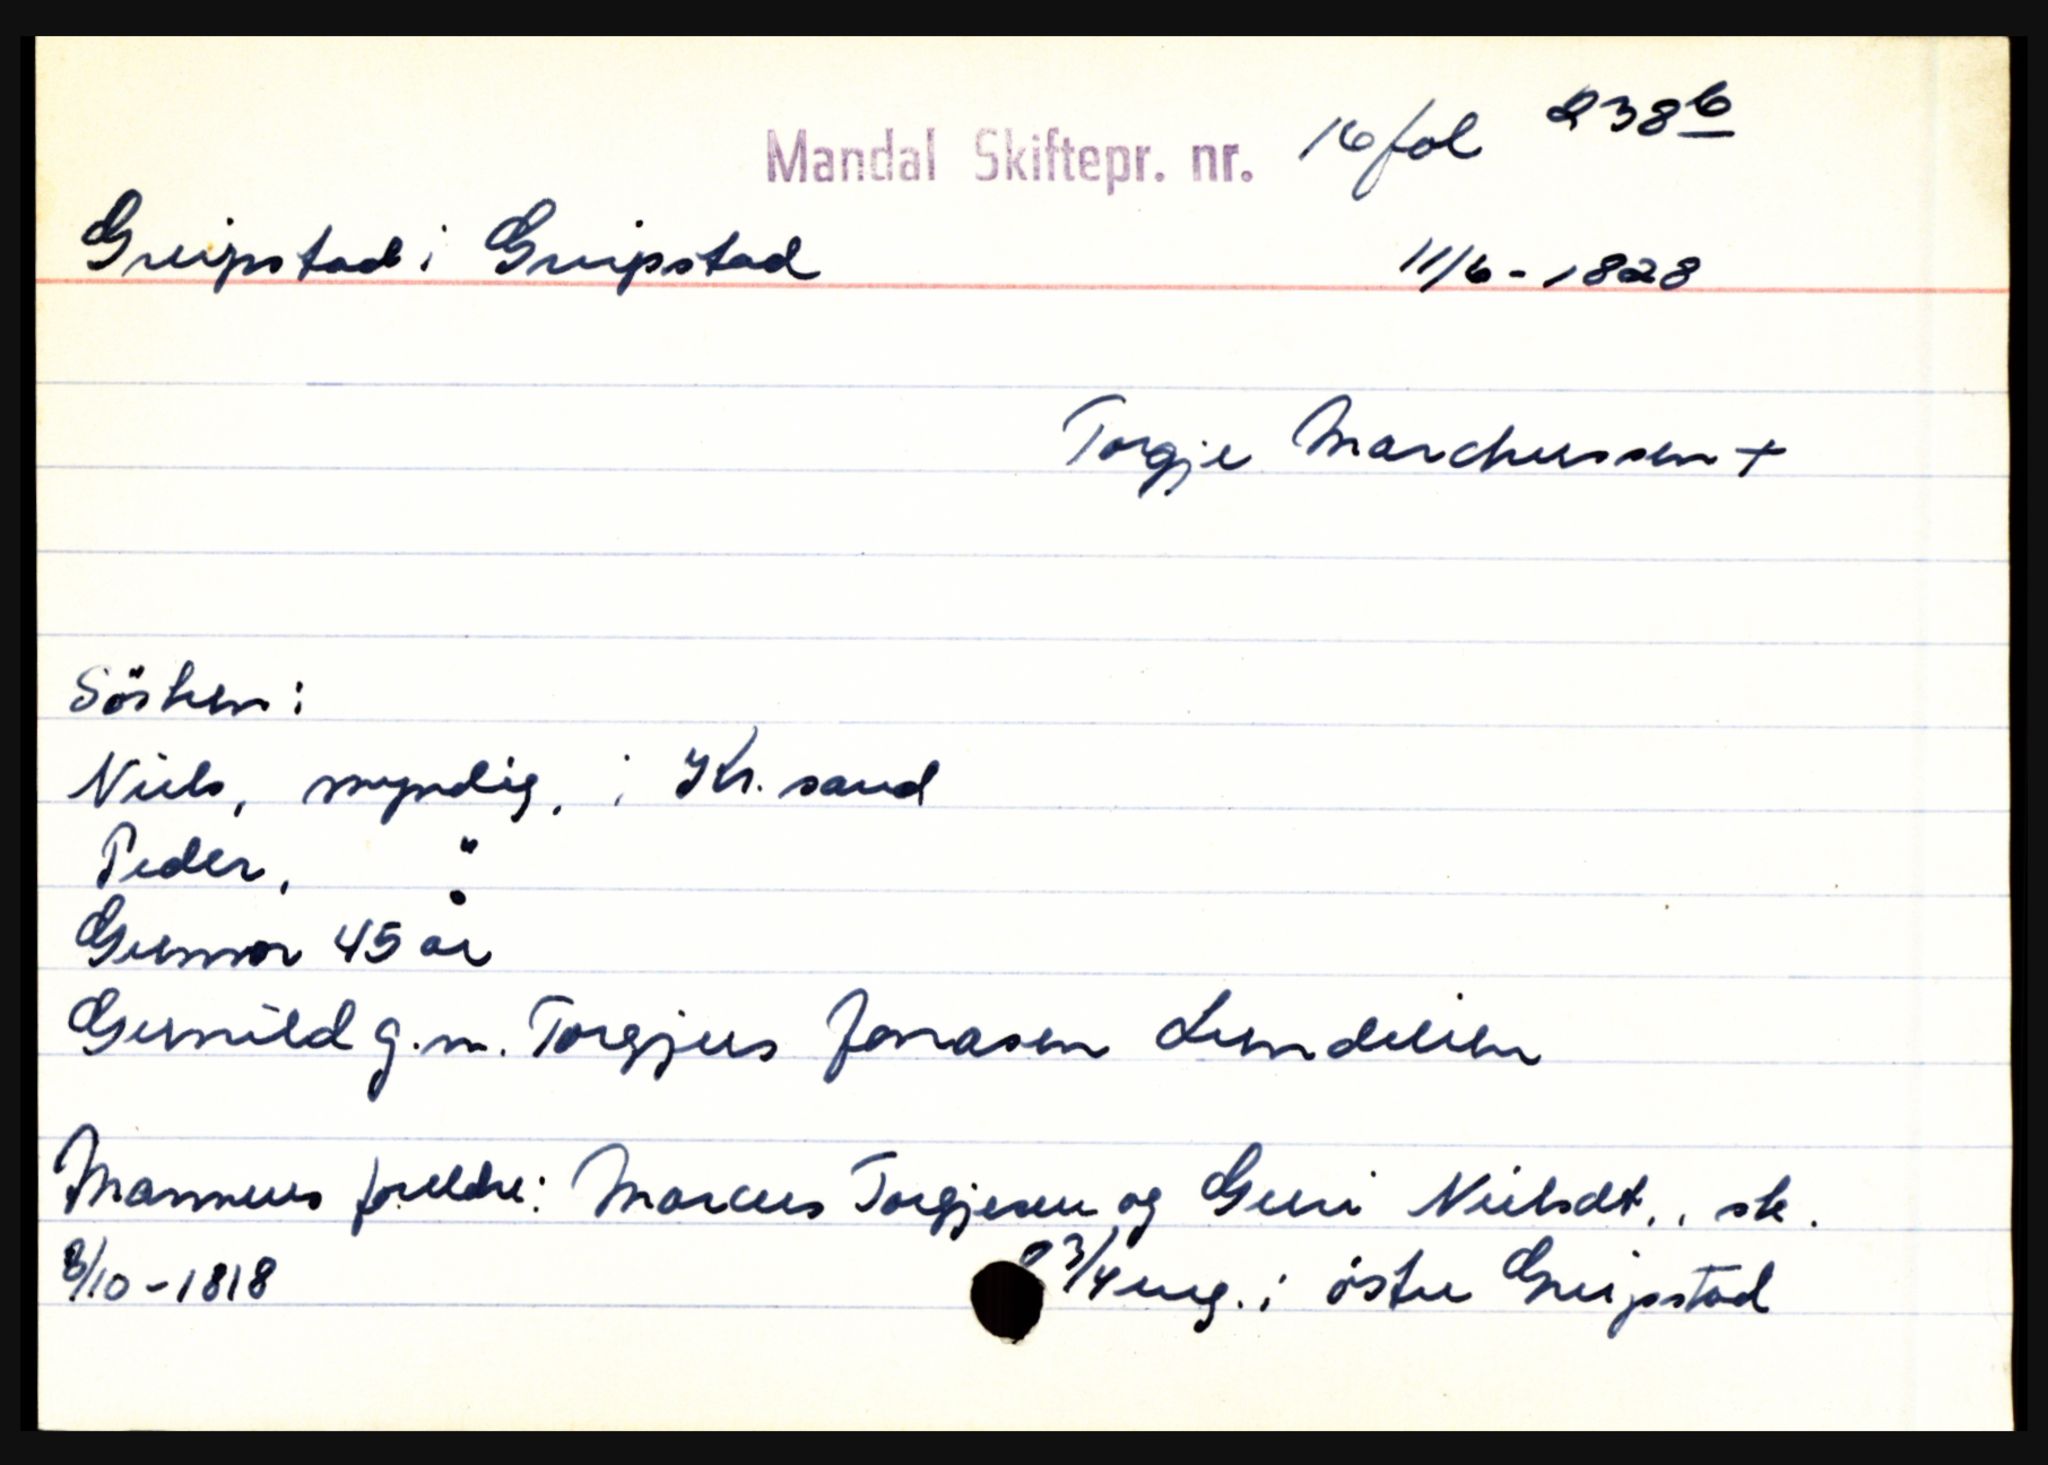 Mandal Skiftepr. nr. 16 fol 238 b
Greipstad i Greipstad 11/6 - 1828
Torgje Marchussen +
Sösken:
Niels, myndig, i Kr. sand
Peder, "
Gunvor 45 år
Gunild g.m. Torgjus Jonasen Lundelien
Mannens foreldre: Marcus Torgjesen og Guri Nielsdt., sk.
8/10 - 1818 2 3/4 eng. i östre Greipstad